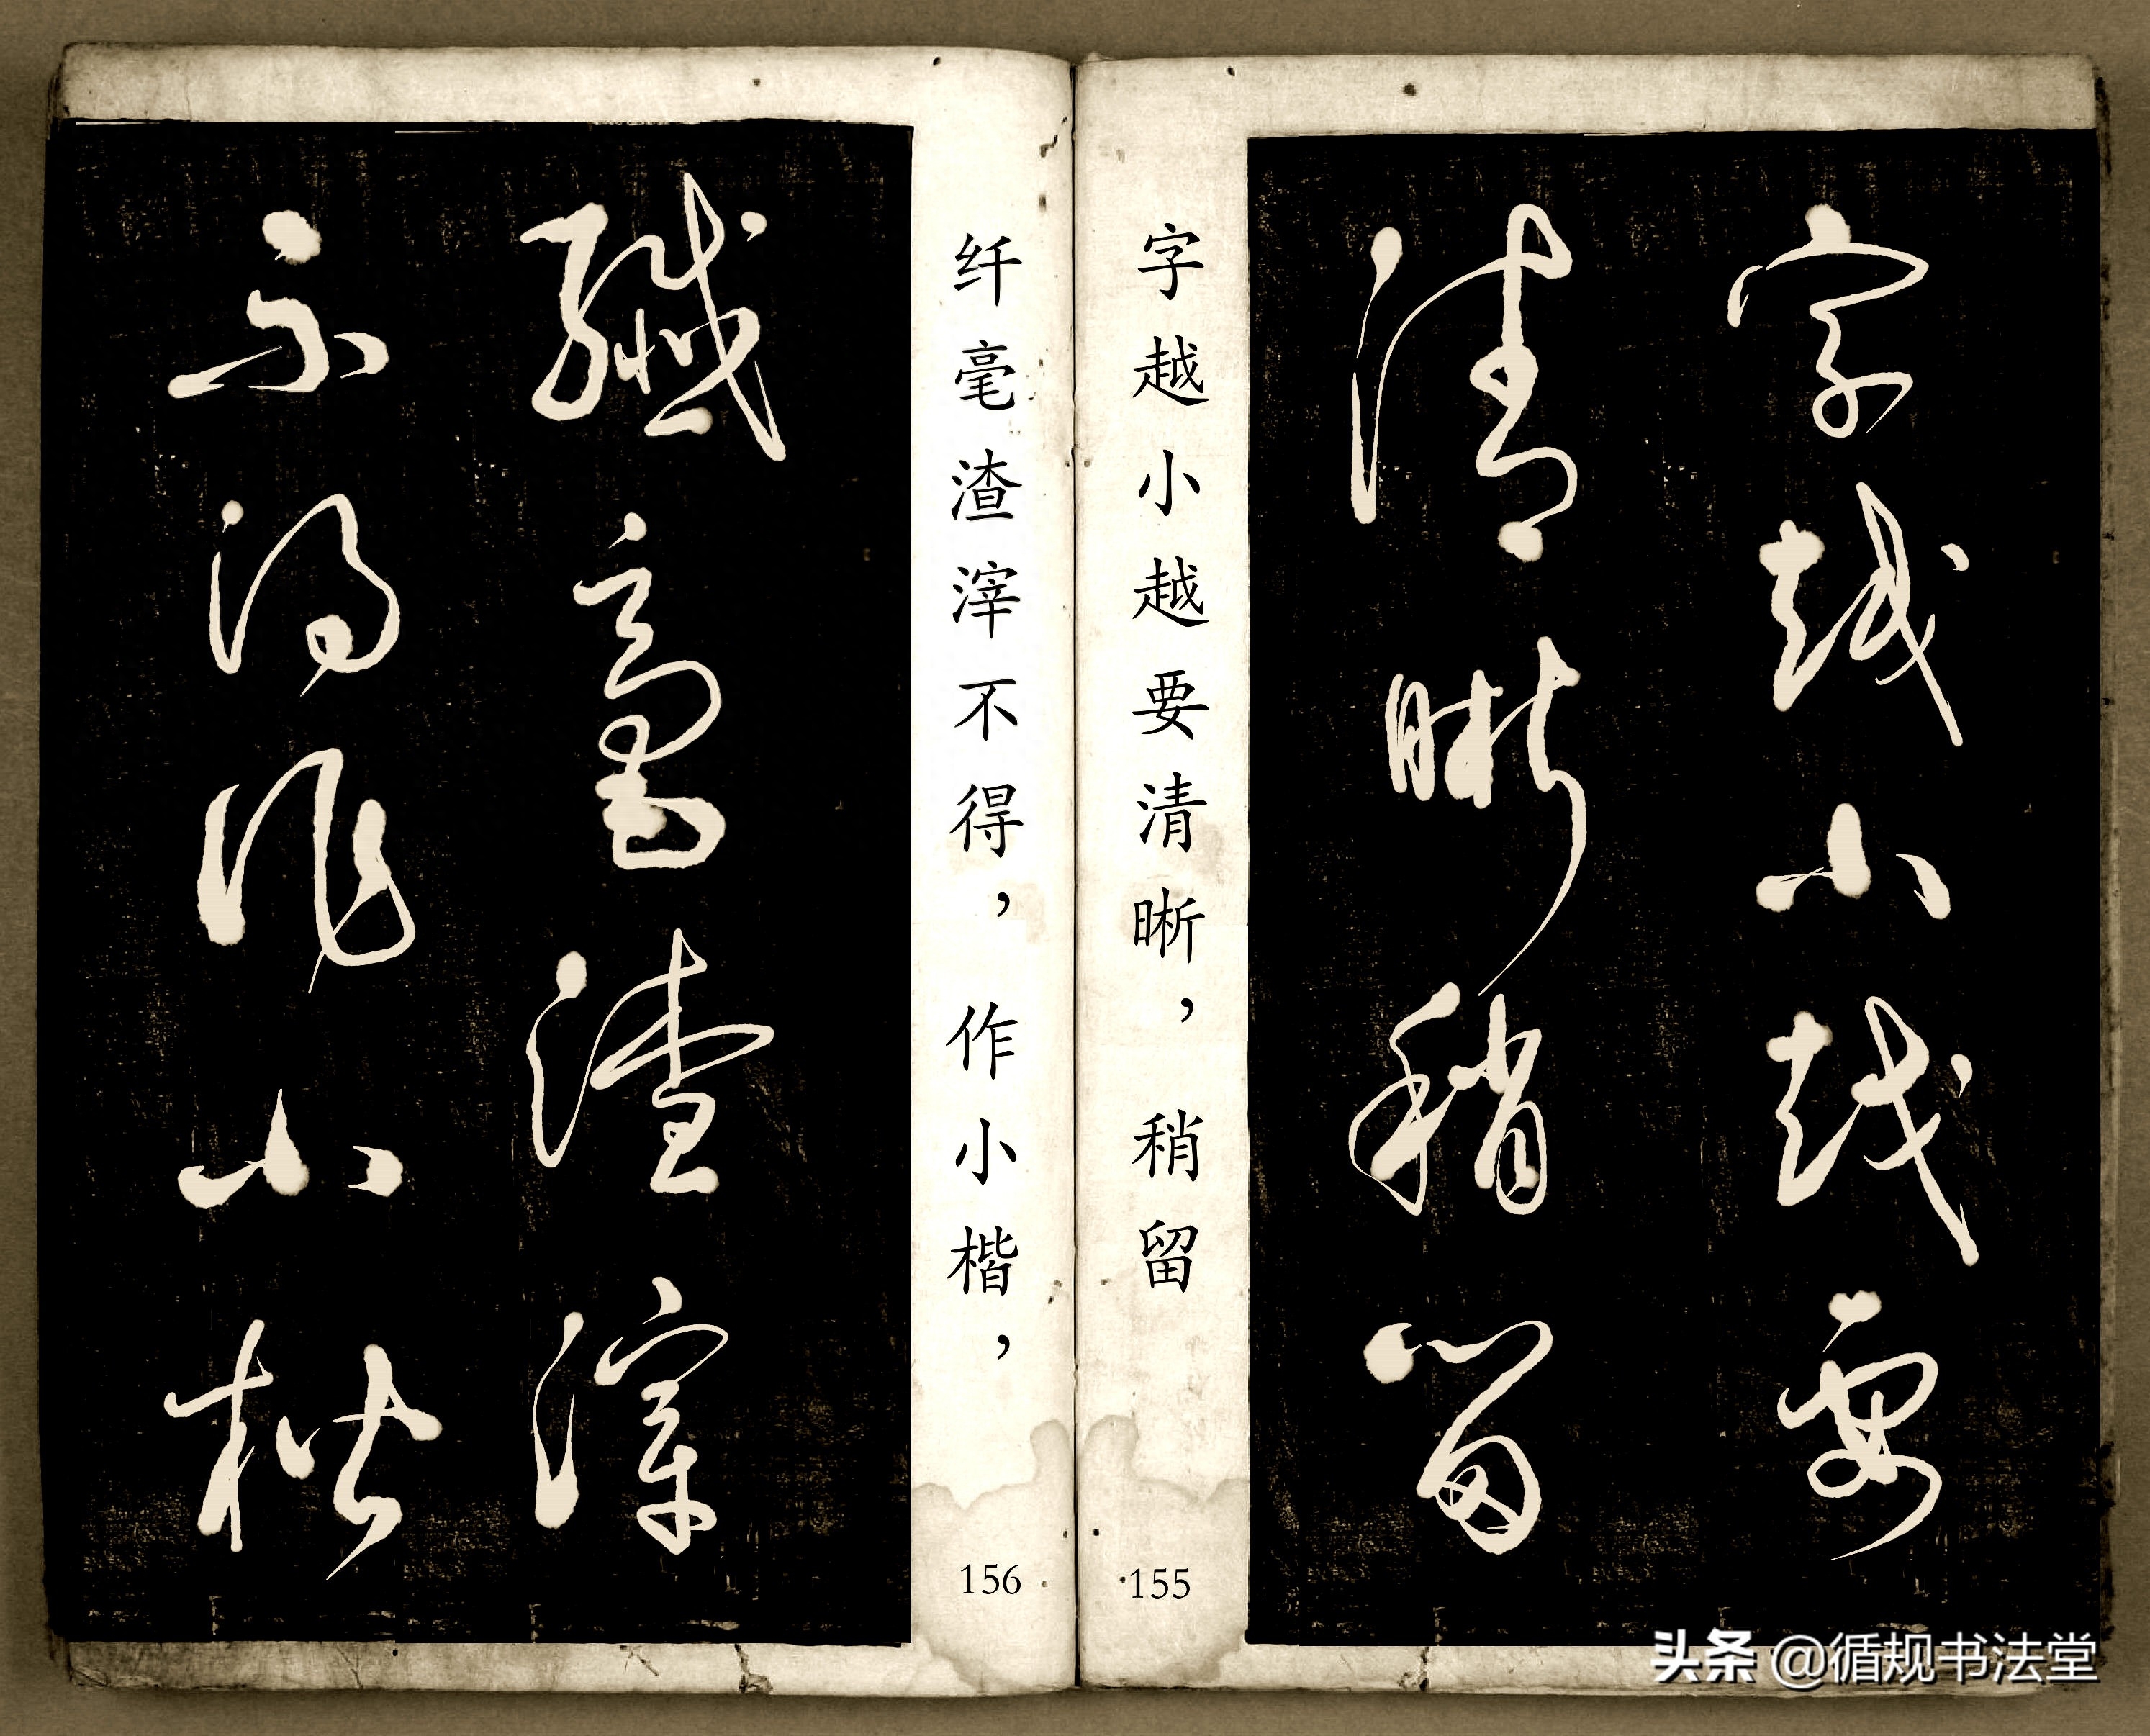 字越小越要
清晰稍留
字越小越要清晰，稍留
155
纤毫渣滓不得，作小楷，
156
纖毫渣滓
不得作小楷
头条 @循规书法堂